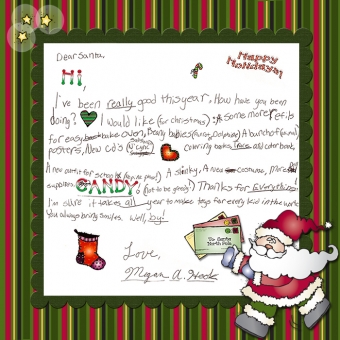 Dear Santa,
Happy
Holidays!
Hi,
I've been really good this year, How have you been
doing? I would like (for christmas): A some more refils
for easy bake oven, Beany babies A bunch of
posters, New CD's (N'Sync) coloring books, Trace and color book
A new outfit for school A slinky, A new costume, More
supplies. CANDY (not to be greedy!) Thanks for Everything!
I'm sure it takes all year to make toys for every kid in the world
You always bring smiles. Well, by!
To: Santa
North Pole
Love,
Megan A.